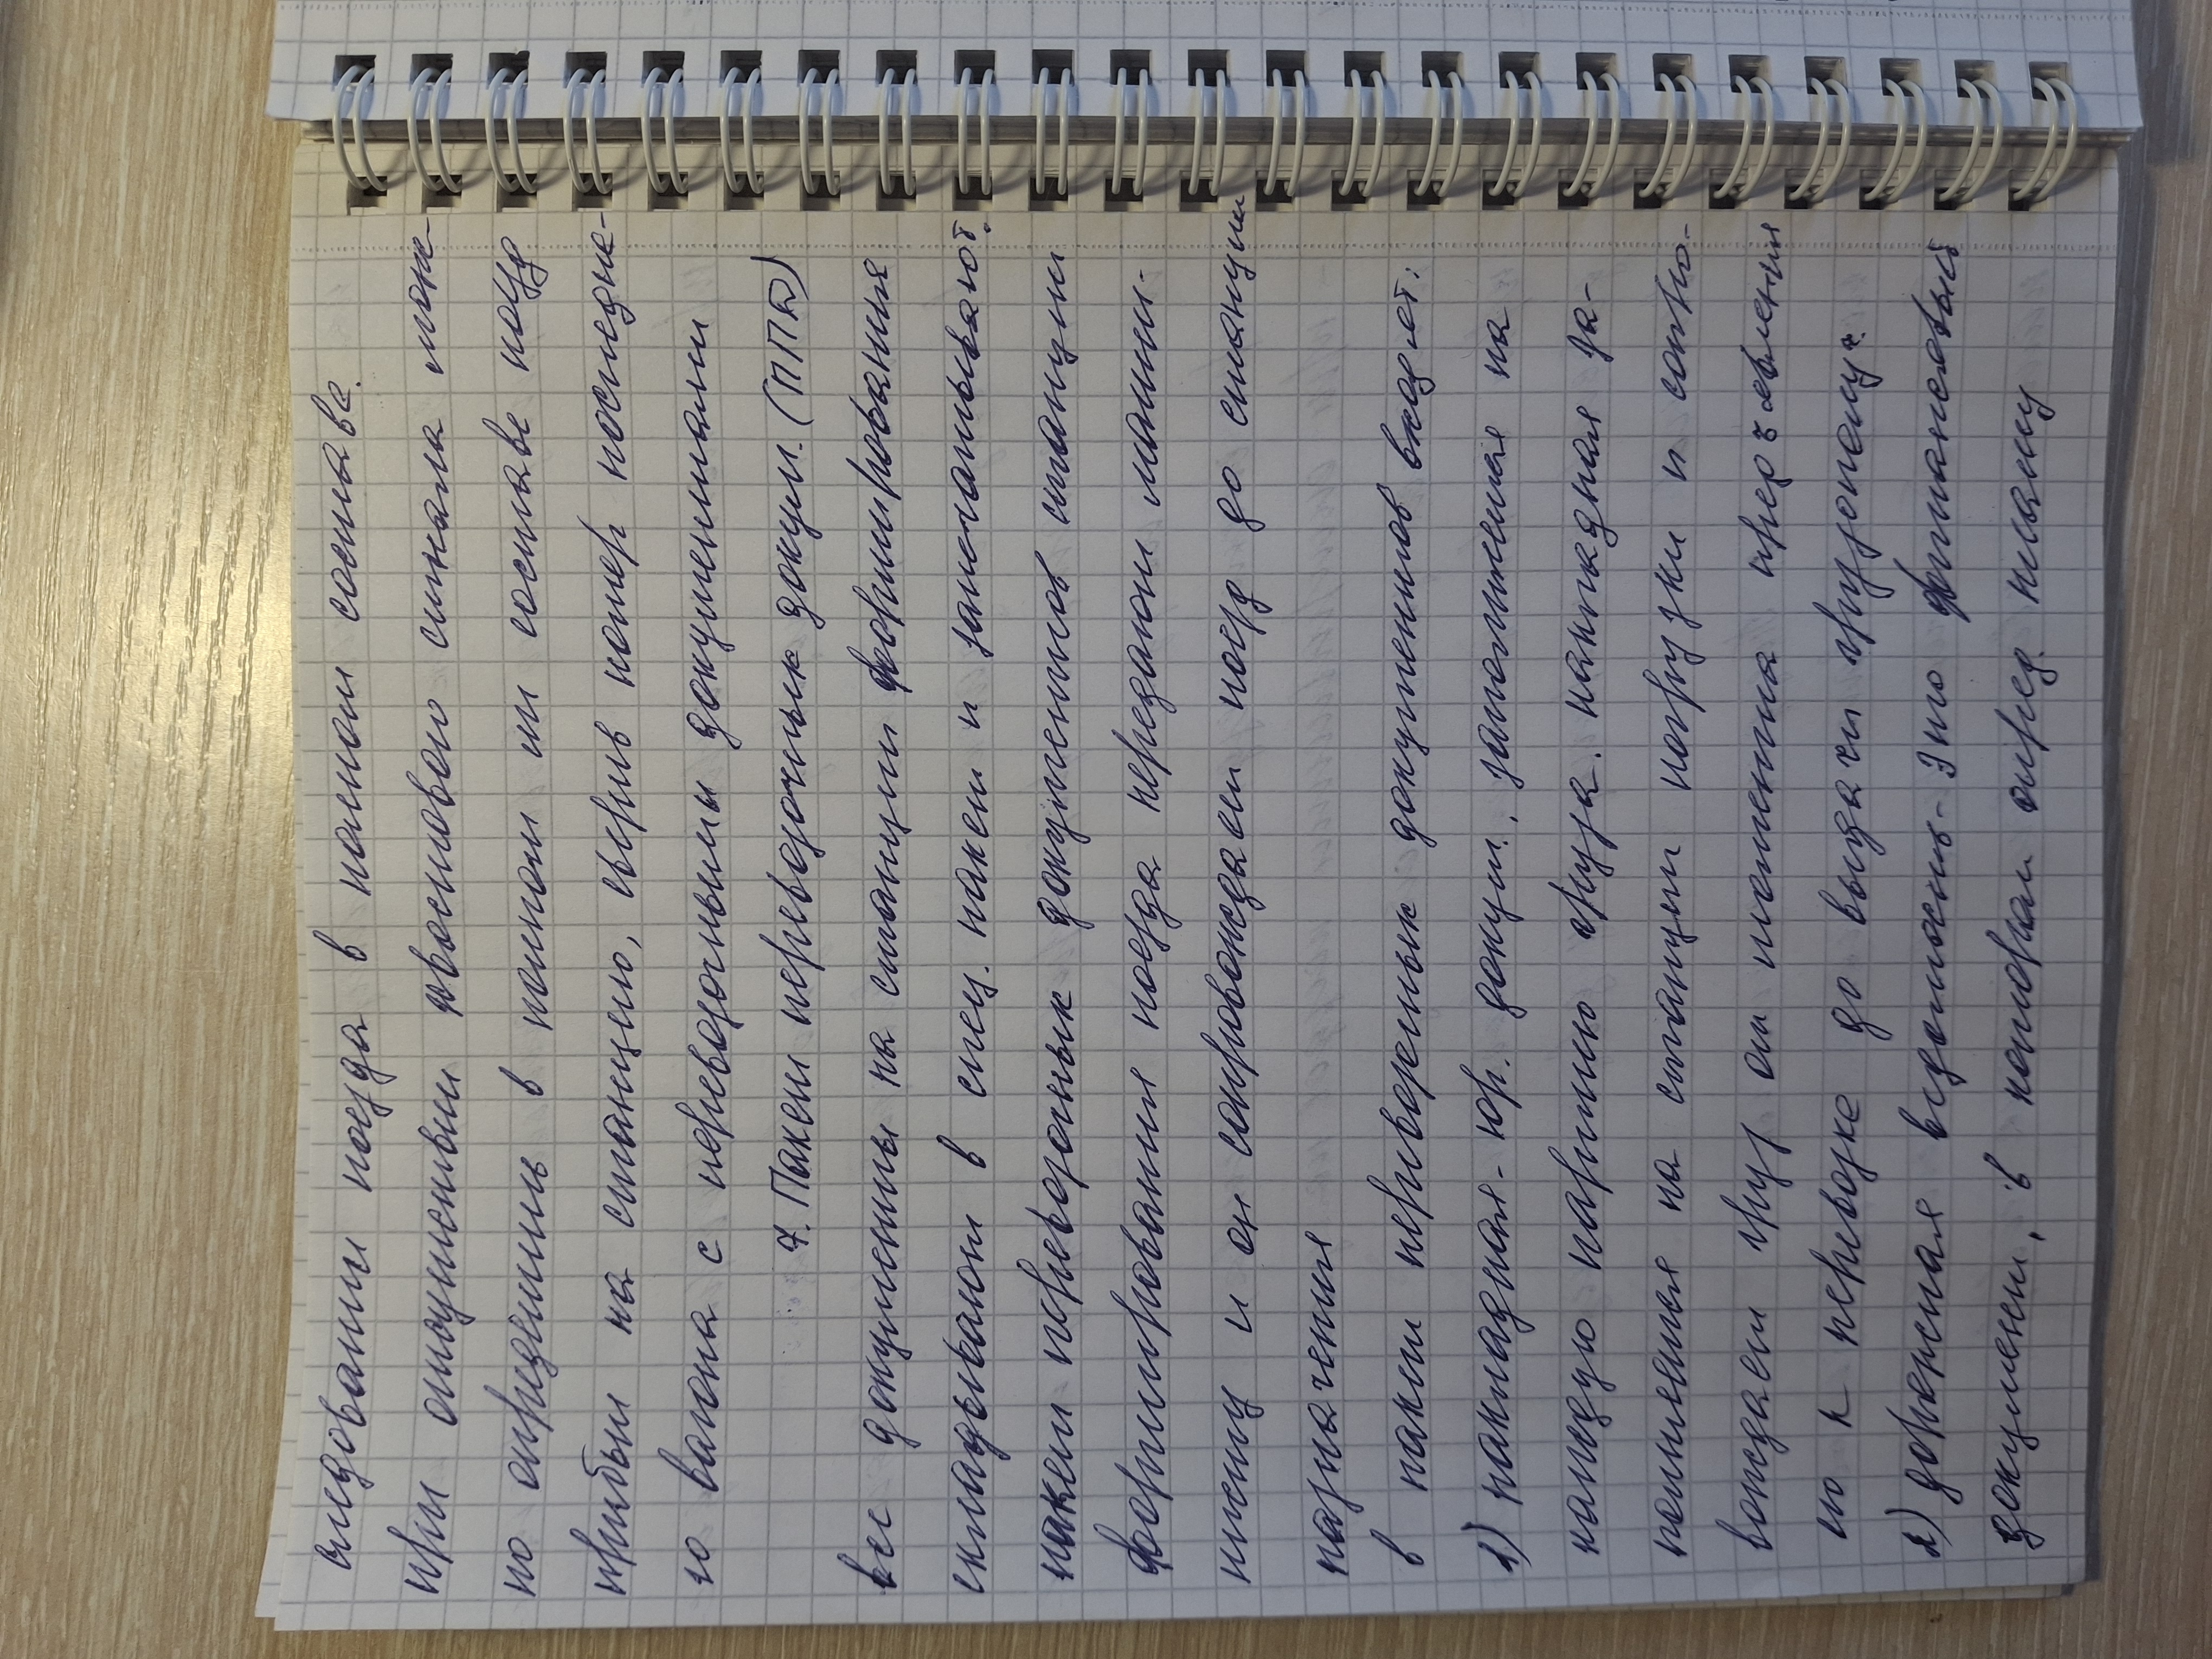 следовании поезда в полном составе.
при отсутствии хвостового сигнала мож-
но определить в полном ли составе поезд
прибыл на станцию, сверив номер последне-
го вагона с перевозочными документами
7. Пакет перевозочных докум. (ППД)
все документы на станции формирования
складывают в спец. пакет и запечатывают.
пакет перевозочных документов станции
формирования поезда передают машин-
нисту и он сопровождает поезд до станции
назначения
в пакет перевозочных документов входит:
1) накладная - юр. докум. заполненная на
каждую партию груза. накладная за-
полняется на станции погрузки и сопро-
вождает груз от момента предъявления
его к перевозке до выдачи грузополуч.
2) дорожная ведомость - это финансовый
документ, в котором опред. плату